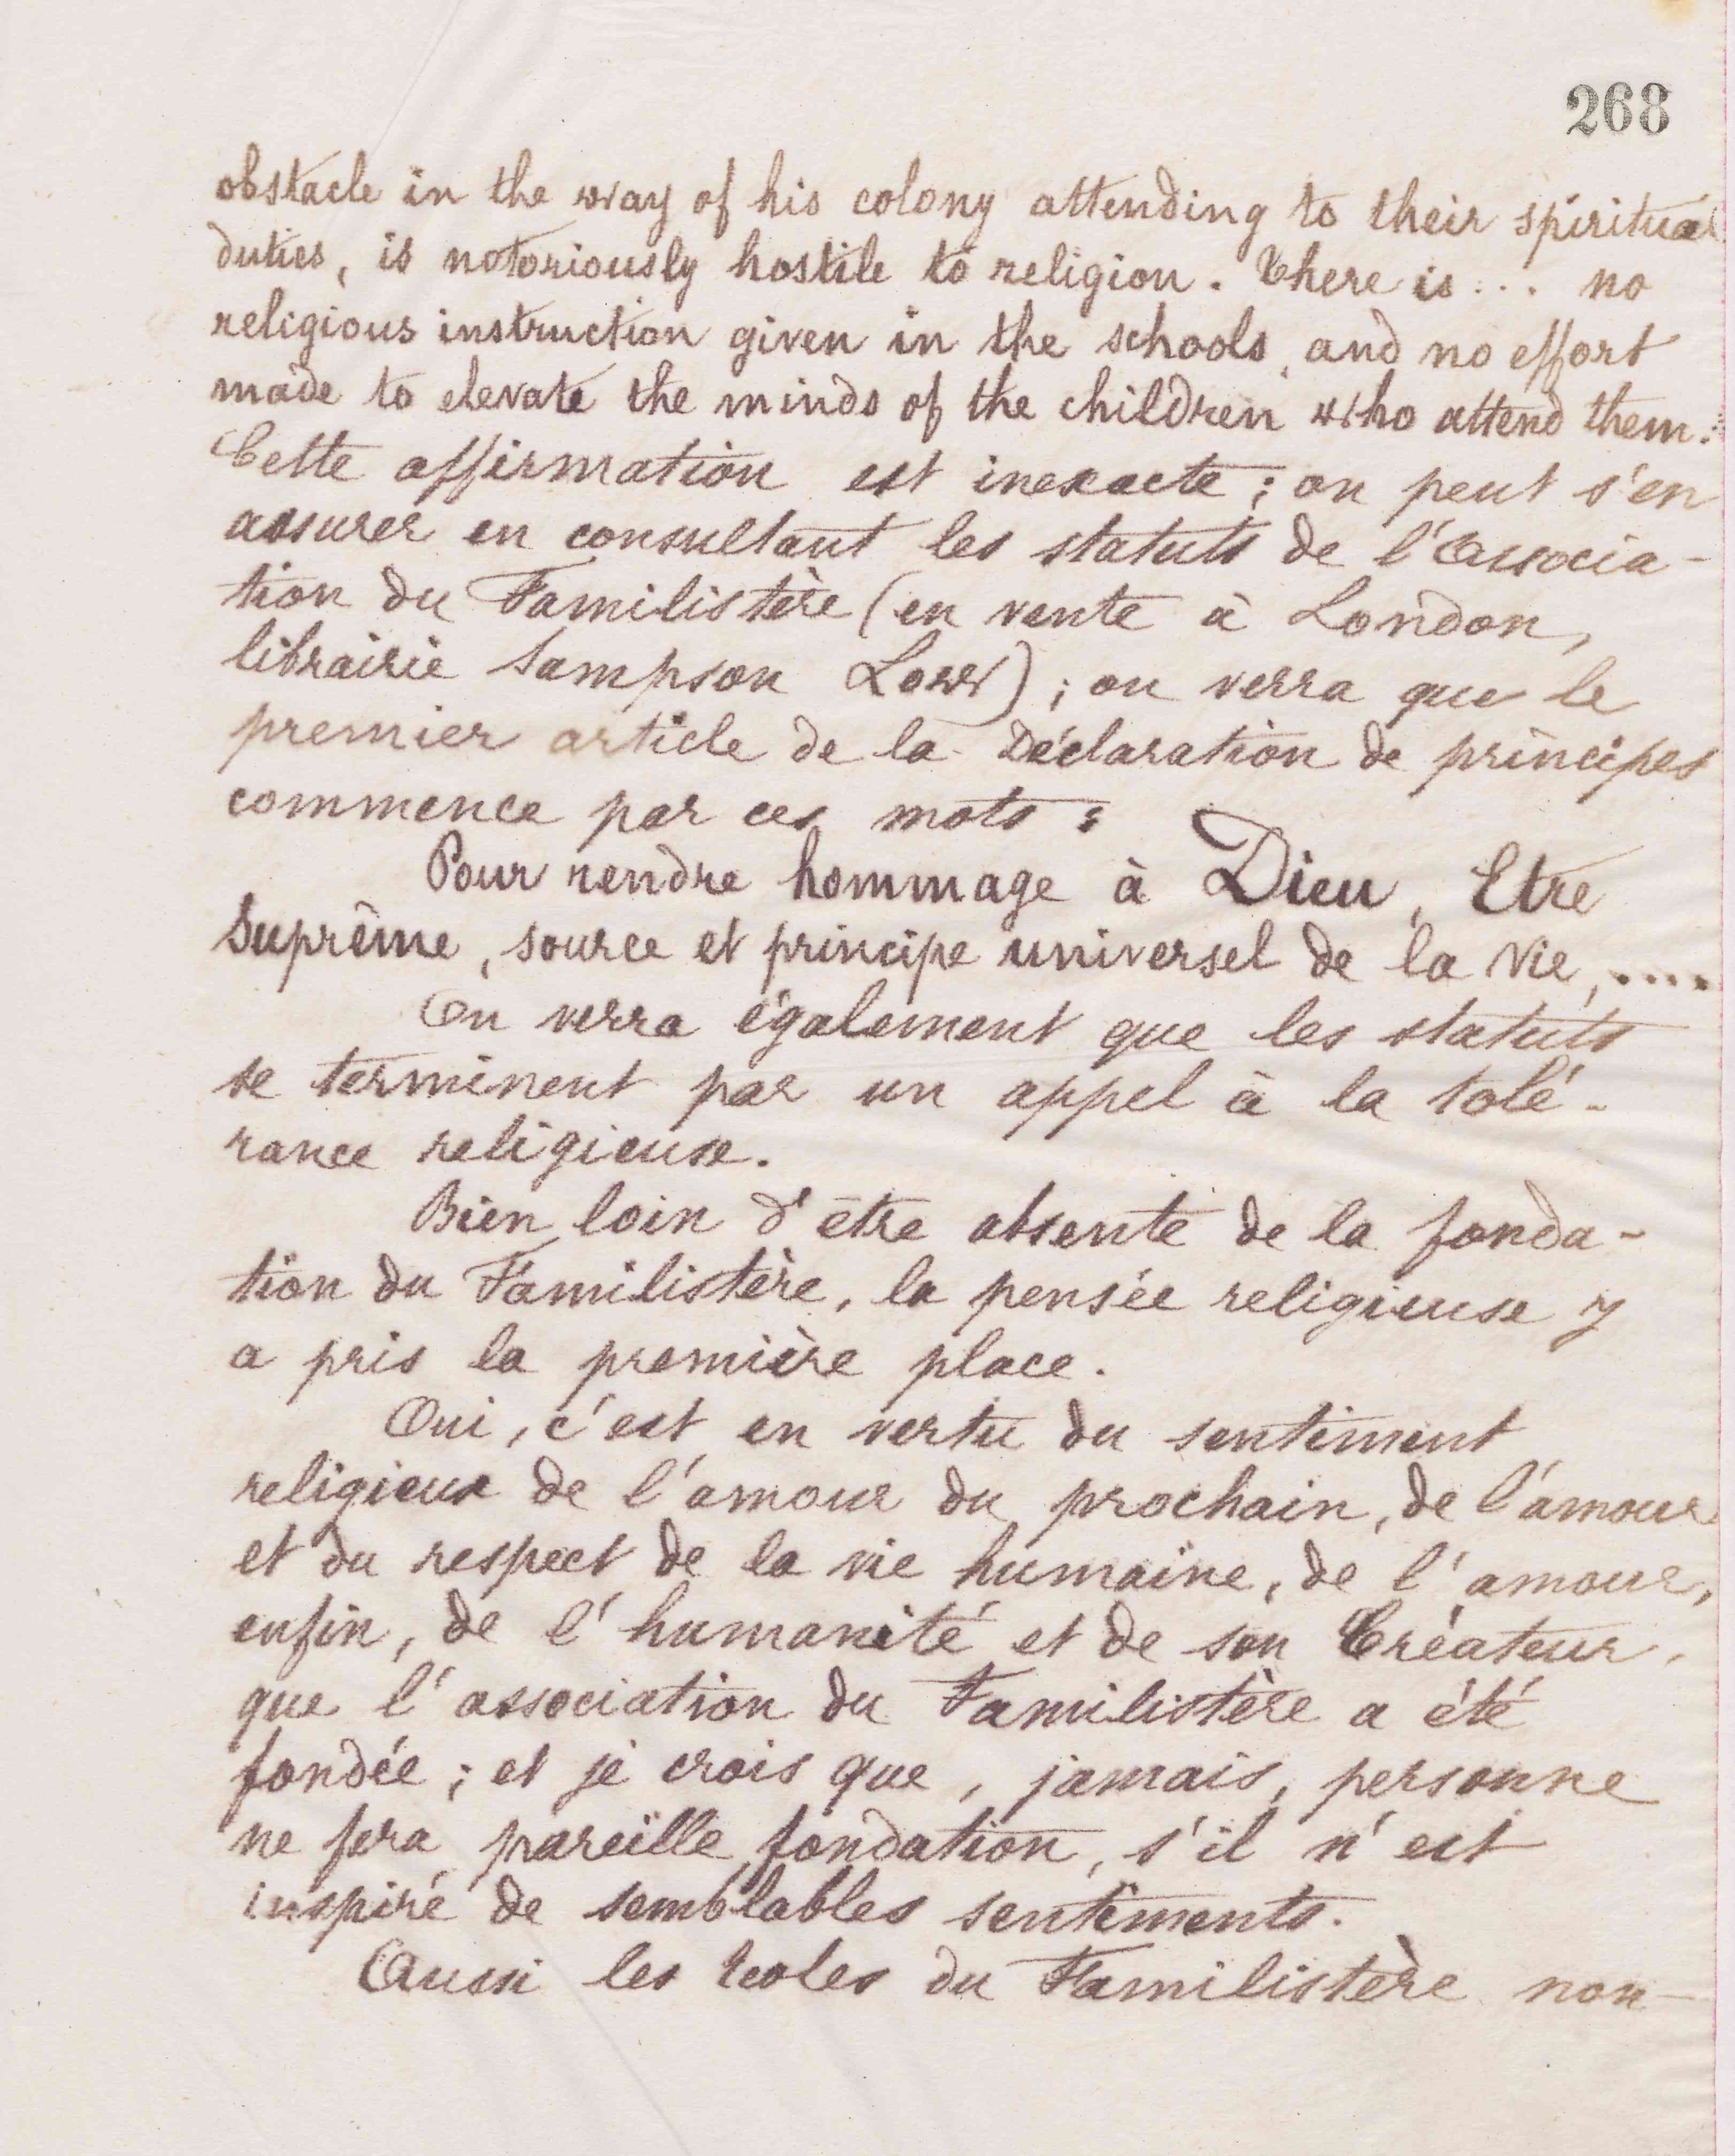 268
obstacle in the way of his colony attending to their spiritual
duties, is notoriously hostile to religion. There is ... no
religious instruction given in the schools, and no effort
made to elevate the minds of the children who attend them.
Cette affirmation est inexacte ; on peut s'en
assurer en consultant les statuts de l'Associa-
tion du Familistère (en vente à London,
librairie Sampson Low) ; on verra que le
premier article de la Déclaration de principes
commence par ces mots :
Pour rendre hommage à Dieu, Etre
Suprême, source et principe universel de la Vie, ....
On verra également que les statuts
se terminent par un appel à la tolé-
rance religieuse.
Bien loin d'être absente de la fonda-
tion du Familistère, la pensée religieuse y
a pris la première place.
Oui, c'est en vertu du sentiment
religieux de l'amour du prochain, de l'amour
et du respect de la vie humaine, de l'amour,
enfin, de l'humanité et de son Créateur,
que l'association du Familistère a été
fondée ; et je crois que, jamais, personne
ne fera pareille fondation, s'il n'est
inspiré de semblables sentiments.
Aussi les Ecoles du Familistère non-